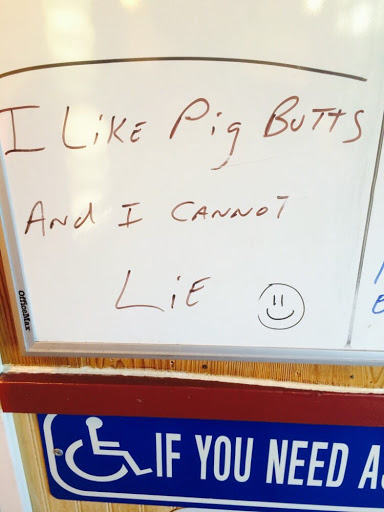 I LiKE Pig BUTTS
ANd I CANNOT
LiE
OfficeMax
IF YOU NEED